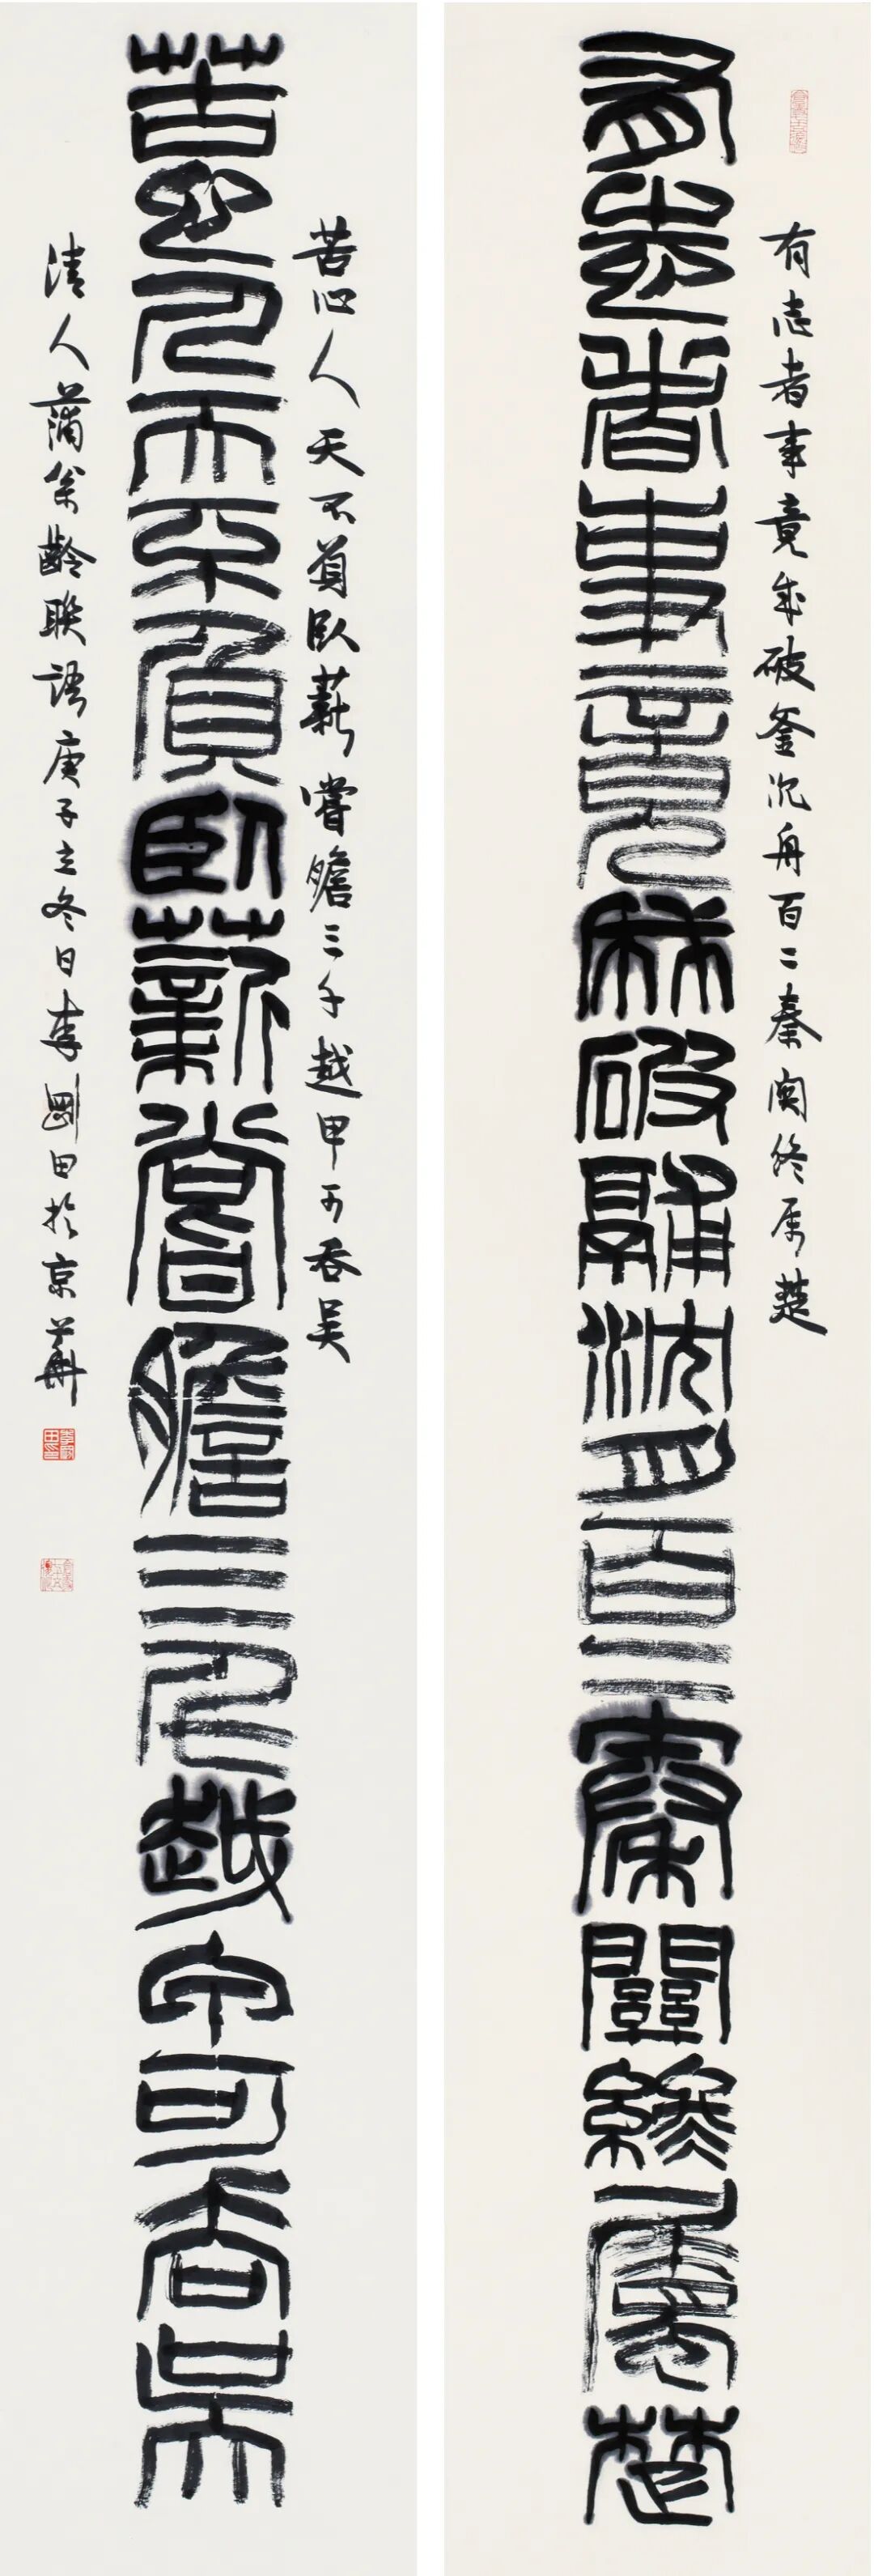 有志者事竟成破釜沉舟百二秦関終属楚
有志者事竟成破鬴沈舟百二秦關終屬楚
苦心人天不負臥薪嘗膽三千越甲可吞吴
苦心人天不負臥薪嘗膽三千越甲可吞吳
清人蒲松齡聯語庚子立冬日李剛田於京華